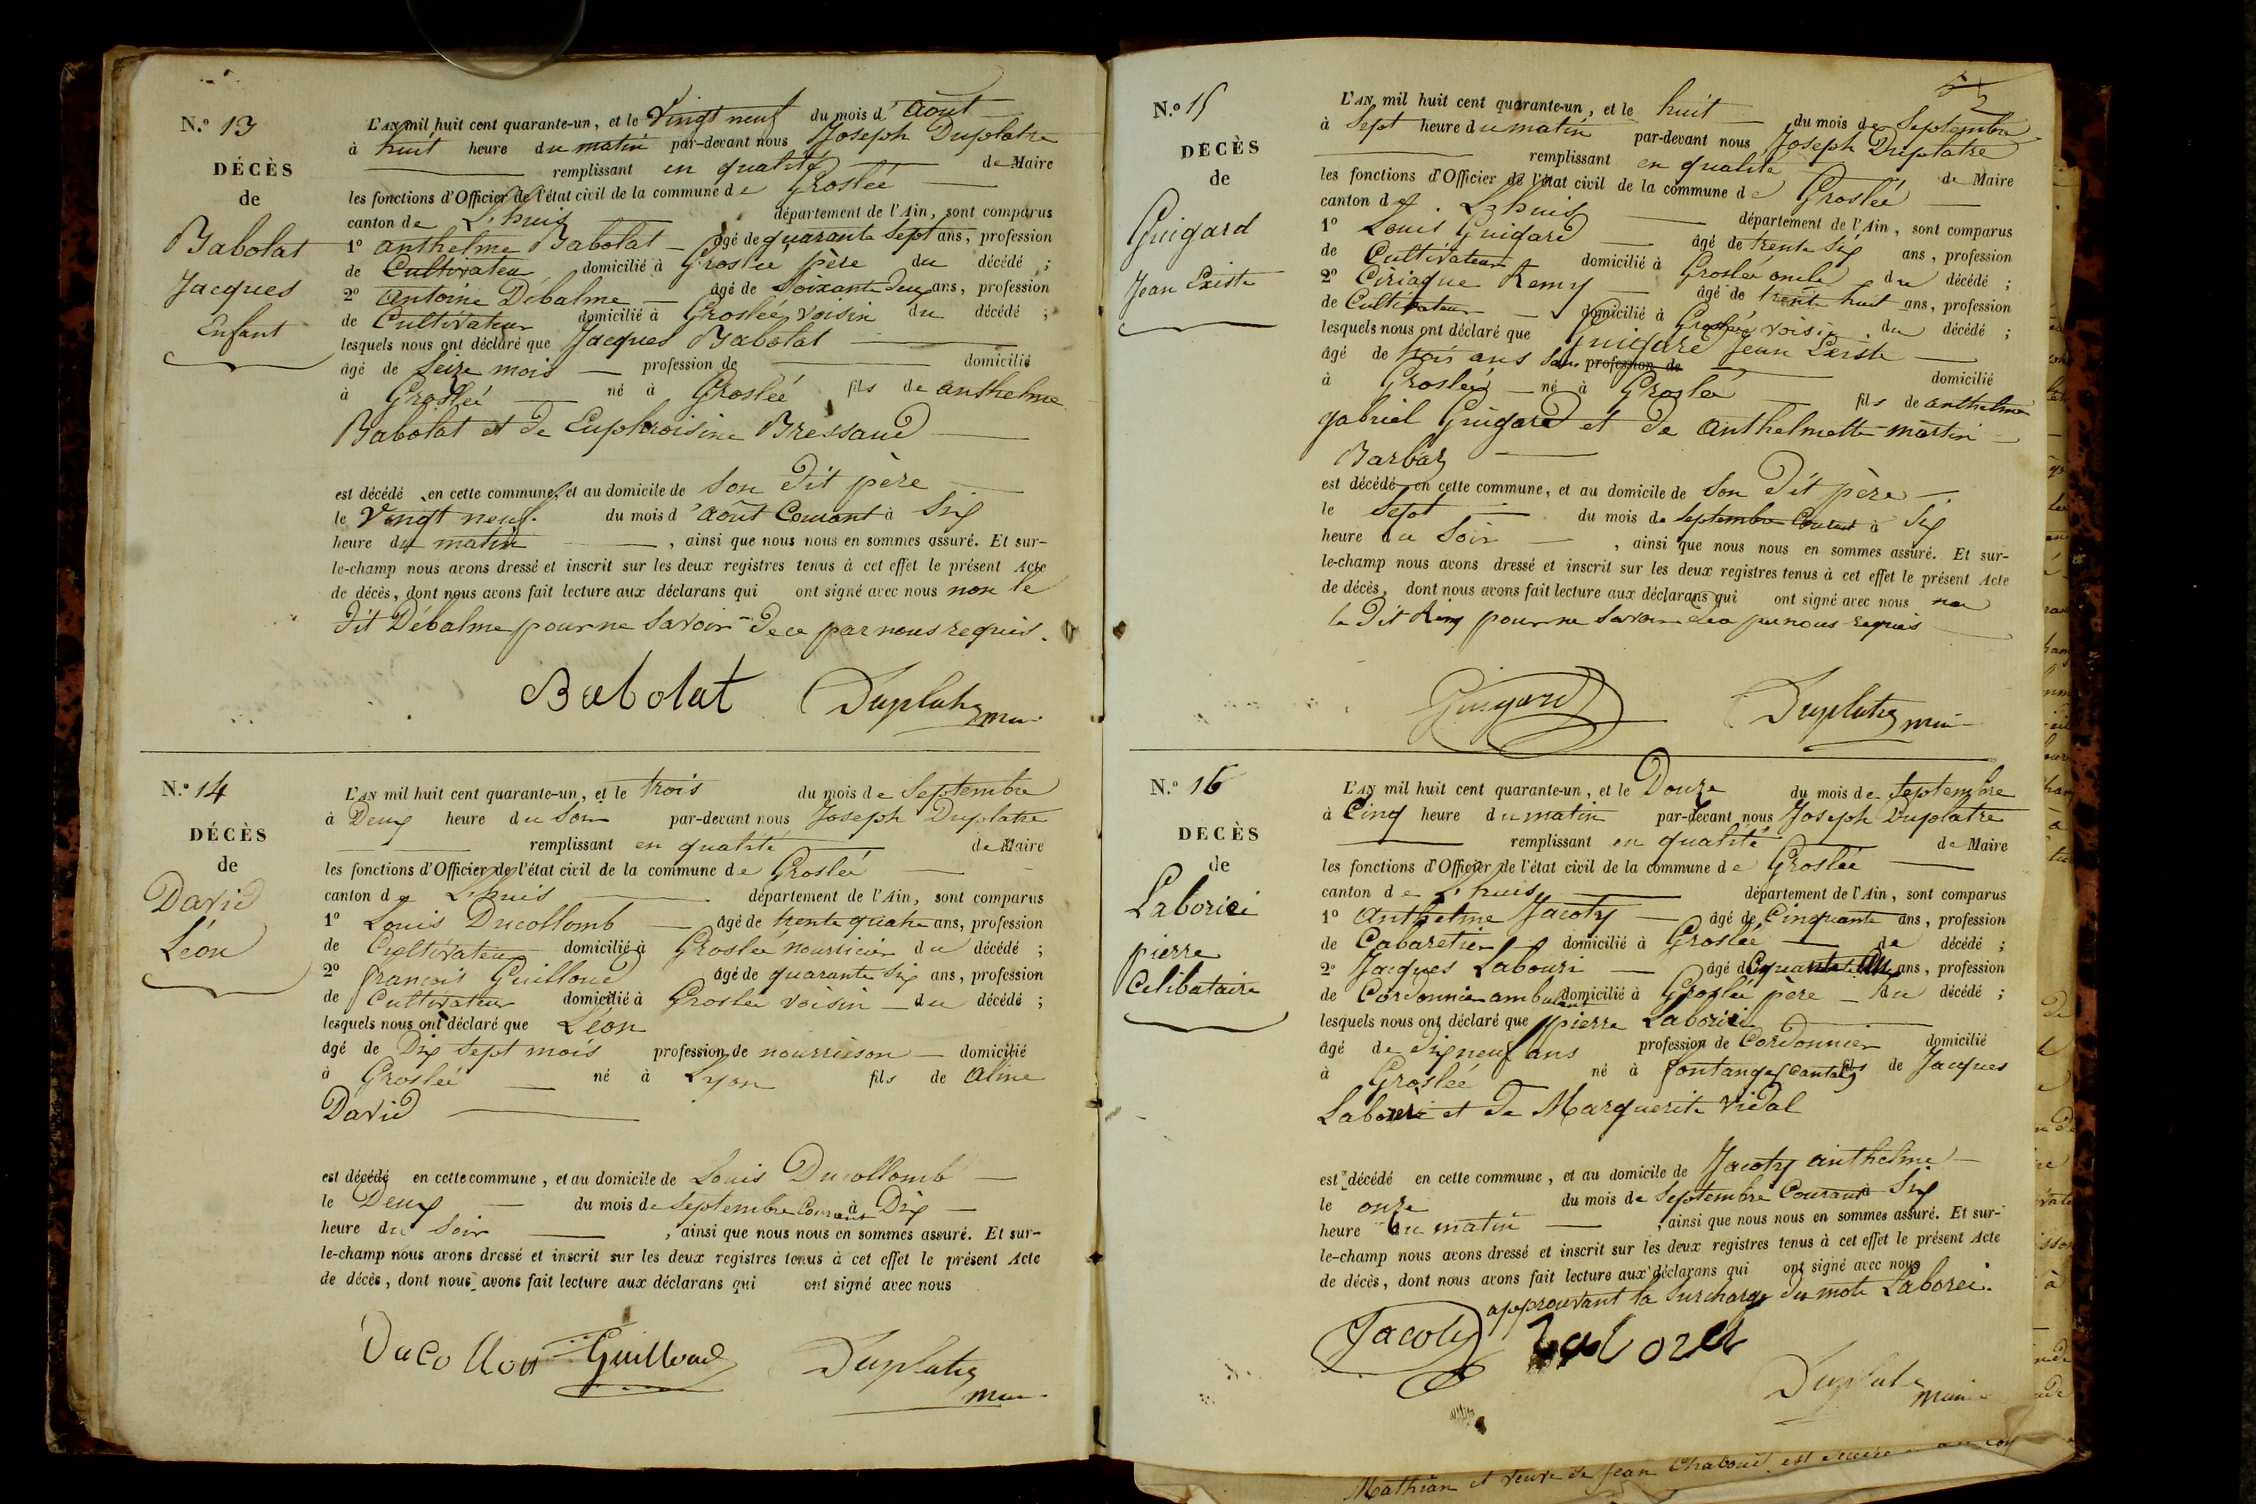 N.º 13
DÉCÈS
de
Babolat
Jacques
Enfant
L'AN mil huit cent quarante-un, et le Vingt neuf du mois d'août
à huit heure du matin par-devant nous Joseph Duplatre
remplissant en qualité de Maire
les fonctions d'Officier de l'état civil de la commune de Groslée
canton de L'huis département de l'Ain, sont comparus
1º anthelme Babolat âgé de quarante sept ans, profession
de Cultivateur domicilié à Groslée père du décédé ;
2º antoine Débalme âgé de soixante deux ans, profession
de Cultivateur domicilié à Groslée voisin du décédé ;
lesquels nous ont déclaré que Jacques Babolat
âgé de seize mois profession de domicilié
à Groslée né à Groslée fils de anthelme
Babolat et de Euphroisine Bressaud
est décédé en cette commune, et au domicile de son dit père
le vingt neuf du mois d'août Courant à Six
heure du matin, ainsi que nous nous en sommes assuré. Et sur-
le-champ nous avons dressé et inscrit sur les deux registres tenus à cet effet le présent Acte
de décès, dont nous avons fait lecture aux déclarans qui ont signé avec nous non le
dit Débalme pour ne savoir de ce par nous requis.
Babolat Duplatre
N.º 14
DÉCÈS
de
David
Léon
L'AN mil huit cent quarante-un, et le trois du mois de Septembre
à Deux heure du soir par-devant nous Joseph Duplatre
remplissant en qualité de Maire
les fonctions d'Officier de l'état civil de la commune de Groslée
canton de L'huis département de l'Ain, sont comparus
1º Louis Ducollomb âgé de trente quatre ans, profession
de Cultivateur domicilié à Groslée nourricier du décédé ;
2º françois Guilloud âgé de quarante six ans, profession
de Cultivateur domicilié à Groslée voisin du décédé ;
lesquels nous ont déclaré que Léon
âgé de Dix sept mois profession de nourrisson domicilié
à Groslée né à Lyon fils de aline
David
est décédé en cette commune, et au domicile de Louis Ducollomb
le Deux du mois de septembre Courant à Dix
heure du soir, ainsi que nous nous en sommes assuré. Et sur-
le-champ nous avons dressé et inscrit sur les deux registres tenus à cet effet le présent Acte
de décès, dont nous avons fait lecture aux déclarans qui ont signé avec nous
Ducollon Guilloud Duplatre
N.º 15
DÉCÈS
de
Guigard
Jean Sixte
L'AN mil huit cent quarante-un, et le huit du mois de Septembre
à Sept heure du matin par-devant nous Joseph Duplatre
remplissant en qualité de Maire
les fonctions d'Officier de l'état civil de la commune de Groslée
canton de L'huis département de l'Ain, sont comparus
1º Louis Guigard âgé de trente six ans, profession
de Cultivateur domicilié à Groslée oncle du décédé ;
2º Ciriaque Remy âgé de trente huit ans, profession
de Cultivateur domicilié à Groslée voisin du décédé ;
lesquels nous ont déclaré que Guigard Jean Sixte
âgé de trois ans sans profession de domicilié
à Groslée né à Groslée fils de anthelme
gabriel Guigard et de anthelmette martin
Barbaz
est décédé en cette commune, et au domicile de son dit père
le Sept du mois de septembre Courant à Six
heure du Soir, ainsi que nous nous en sommes assuré. Et sur-
le-champ nous avons dressé et inscrit sur les deux registres tenus à cet effet le présent Acte
de décès, dont nous avons fait lecture aux déclarans qui ont signé avec nous non
le dit Remy pour ne savoir de ce par nous requis
Guigard Duplatre
N.º 16
DÉCÈS
de
Laborei
pierre
Celibataire
L'AN mil huit cent quarante-un, et le Douze du mois de Septembre
à Cinq heure du matin par-devant nous Joseph Duplatre
remplissant en qualité de Maire
les fonctions d'Officier de l'état civil de la commune de Groslée
canton de L'huis département de l'Ain, sont comparus
1º Anthelme Jacoty âgé de Cinquante ans, profession
de Cabaretier domicilié à Groslée de décédé ;
2º Jacques Labouri âgé de ans, profession
de Cordonnier ambulant domicilié à Groslée père du décédé ;
lesquels nous ont déclaré que pierre Laborei
âgé de dix neuf ans profession de Cordonnier domicilié
à Groslée né à fontanges Cantal fils de Jacques
Laborei et de Marguerite Vidal
est décédé en cette commune, et au domicile de Jacoty anthelme
le onze du mois de Septembre Courant à Six
heure du matin, ainsi que nous nous en sommes assuré. Et sur-
le-champ nous avons dressé et inscrit sur les deux registres tenus à cet effet le présent Acte
de décès, dont nous avons fait lecture aux déclarans qui ont signé avec nous
approuvant la surcharge du mots Laborei.
Jacoty Duplatre
Mathian et veuve de jean Chabou est